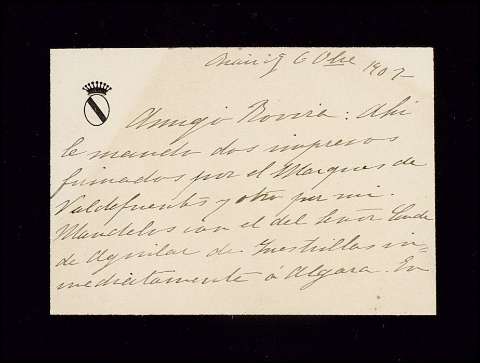 Madrid 6 Obre 1902
Amigo Rovira: Ahi
le mando dos impresos
firmados por el Marques de
Valdefuentes y otro por mi.
Mandelos con el del Señor Conde
de Aguilar de Inestrillas in=
mediatamente á Algara. En